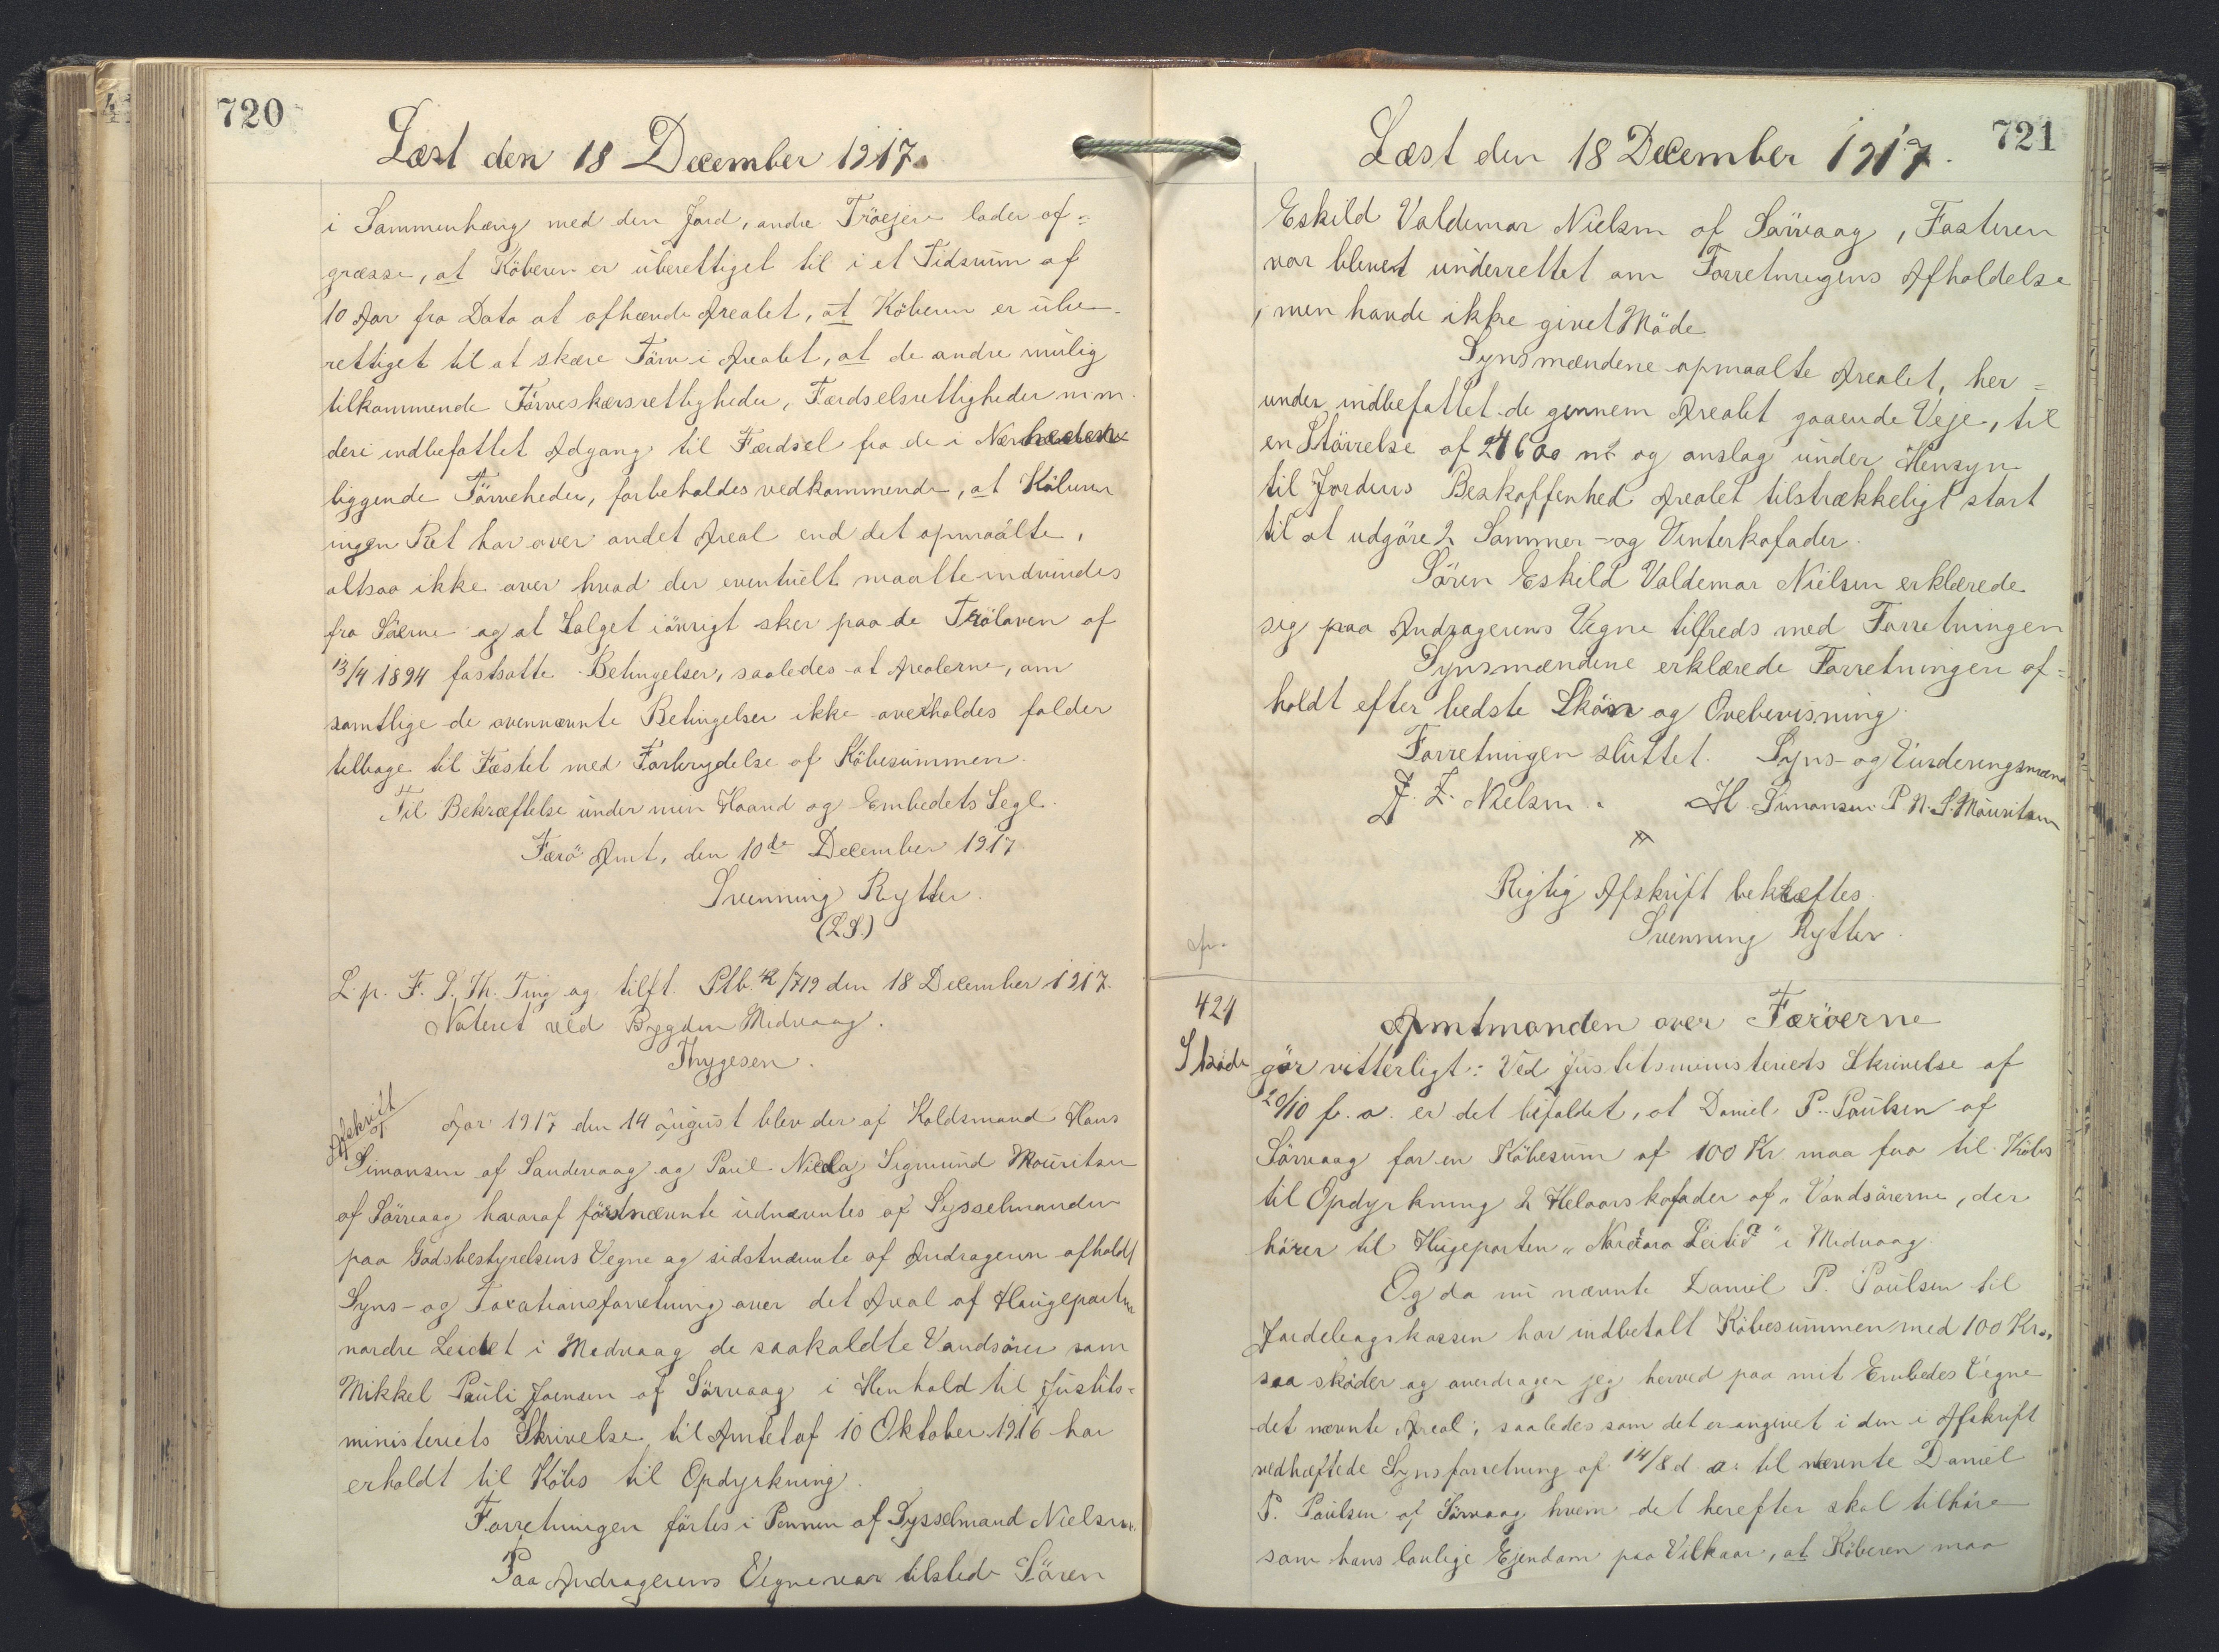 720
Læst den 18 December 1917.
i Sammenhæng med den Jord, andre Tröejere lader af=
græsse, at Köberen er uberettiget til i et Tidsrum af
10 Aar fra Dato at afhænde Arealet, at Köberen er ube-
rettiget til at skære Törv i Arealet, at de andre mulig
tilkommende Törveskærsrettigheder, Færdselsrettigheder m m.
deri indbefattet Adgang til Færdsel fra de i Nærheden
liggende Törveheder, forbeholdes vedkommende, at Köberen
ingen Ret har over andet Areal end det opmaalte,
altsaa ikke over hvad der eventuelt maatte indvindes
fra Söerne og at Salget iövrigt sker paa de Trölaven af
13/4 1894 fastsatte Betingelser, saaledes at Arealerne, om
samtlige de ovennævnte Betingelser ikke overholdes falder
tilbage til Fæstet med Fortrydelse af Köbesummen.
Til Bekræftelse under min Haand og Embedets Segl.
Færö Amt, den 10de December 1917
Svenning Rytter.
(L.S.)
L. p. F. S. Th. Ting og tilft. Ptb. K/719 den 18 December 1917.
Noteret ved Bygden Midvaag.
Thygesen.
Afskrift
Aar 1917 den 14 August blev der af Koldsmand Hans
Simonsen af Sandevaag og Paul Nicolaj Sigmund Mouritsen
af Sörvaag hvoraf förstnævnte udnævntes af Sysselmanden
paa Godsbestyrelsens Vegne og sidstnævnte af Andrageren afholdt
Syns- og Taxationsforretning over det Areal af Haugeparten
nordre Leidet i Midvaag de saakaldte Vandsörer som
Mikkel Pauli Joensen af Sörvaag i Henhold til Justits=
ministeriets Skrivelse til Amtet af 10 Oktober 1916 har
erholdt til Köbs til Opdyrkning.
Forretningen förtes i Pennen af Sysselmand Nielsen.
Paa Andragerens Vegne var tilstede Sören
721
Læst den 18 December 1917.
Eskild Valdemar Nielsen af Sörvaag, Fæsteren
var blevet underrettet om Forretningens Afholdelse
, men havde ikke givet Möde
Synsmændene opmaalte Arealet, her=
under indbefattet de gennem Arealet gaaende Veje, til
en Störrelse af 24600 m2 og anslog under Hensyn
til Jordens Beskaffenhed Arealet tilstrækkeligt stort
til at udgöre 2 Sommer- og Vinterkofoder.
Sören Eskild Valdemar Nielsen erklærede
sig paa Andragerens Vegne tilfreds med Forretningen
Synsmændene erklærede Forretningen af=
holdt efter bedste Skön og Overbevisning.
Forretningen sluttet. Syns- og Vurderingsmænd
J. F. Nielsen. H. Simonsen P N. S Mouritsen
Rigtig Afskrift bekræftes.
Svenning Rytter.
421
Sköde
Amtmanden over Færöerne
gör vitterligt: Ved Justitsministeriets Skrivelse af
20/10 f. a. er det bifaldet, at Daniel P. Poulsen af
Sörvaag for en Köbesum af 100 Kr. maa faa til Köbs
til Opdyrkning 2 Helaarskofoder af „Vandsörerne, der
hörer til Hugeparten „Nordara Leitid" i Midvaag.
Og da nu nævnte Daniel P. Poulsen til
Jordebogskassen har indbetalt Köbesummen med 100 Kr.,
saa sköder og overdrager jeg herved paa mit Embedes Vegne
det nævnte Areal, saaledes som det er angivet i den i Afskrift
vedhæftede Synsforretning af 14/8 d. a. til nævnte Daniel
P. Poulsen af Sörvaag hvem det herefter skal tilhöre
som hans lovlige Ejendom paa Vilkaar, at Köberen maa